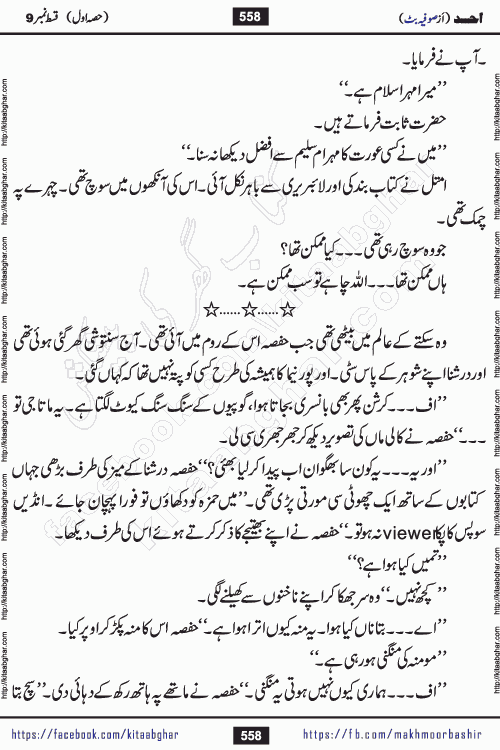 احمد (از صوفیہ بٹ) 558 (حصہ اول) قسط نمبر 9
۔آپ نے فرمایا۔
’’میرا مہر اسلام ہے۔‘‘
حضرت ثابت فرماتے ہیں۔
’’میں نے کسی عورت کا مہر ام سلیم سے افضل دیکھا نہ سنا۔‘‘
امتل نے کتاب بند کی اور لائبریری سے باہر نکل آئی۔ اس کی آنکھوں میں سوچ تھی۔ چہرے پہ
چمک تھی۔
جو وہ سوچ رہی تھی۔۔۔کیا ممکن تھا؟
ہاں ممکن تھا۔۔۔اللہ چاہے تو سب ممکن ہے۔
☆......☆......☆
وہ سکتے کے عالم میں بیٹھی تھی جب حفصہ اس کے روم میں آئی تھی۔ آج سنتوشی گھر گئی ہوئی تھی
اور درشنا اپنے شوہر کے پاس سٹی۔ اور پورنیما کا ہمیشہ کی طرح کسی کو پتہ نہیں تھا کہ کہاں گئی۔
’’اف۔۔۔کرشن پھر بھی بانسری بجاتا ہوا، گوپیوں کے سنگ سنگ کیوٹ لگتا ہے۔ یہ ماتا جی تو
۔۔۔‘‘حفصہ نے کالی ماں کی تصویر دیکھ کر جھر جھری سی لی۔
’’اور یہ۔۔۔یہ کون سا بھگوان اب پیدا کر لیا بھئی؟‘‘حفصہ درشنا کے میز کی طرف بڑھی جہاں
کتابوں کے ساتھ ایک چھوٹی سی مورتی پڑی تھی۔’’میں حمزہ کو دکھاؤں تو فورا پہچان جائے۔ انڈین
سوپس کا پکا viewer نہ ہو تو۔‘‘حفصہ نے اپنے بھتیجے کا ذکر کرتے ہوئے اس کی طرف دیکھا۔
’’تمہیں کیا ہوا ہے؟‘‘
’’کچھ نہیں۔‘‘وہ سر جھکا کر اپنے ناخنوں سے کھیلنے لگی۔
’’اے۔۔۔بتا ناں کیا ہوا۔ یہ منہ کیوں اترا ہوا ہے۔‘‘حفصہ اس کا منہ پکڑ کر اوپر کیا۔
’’مومنہ کی منگنی ہو رہی ہے۔‘‘
’’اف۔۔۔ہماری کیوں نہیں ہوتی یہ منگنی۔‘‘حفصہ نے ماتھے پہ ہاتھ رکھ کے دہائی دی۔’’سچ بتا
https://facebook.com/kitaabghar 558 https://fb.com/makhmoorbashir
http://kitaabghar.com